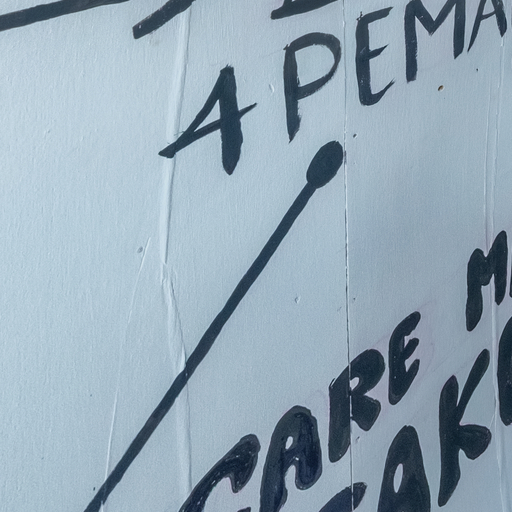 A PEMA
CARE M
AK